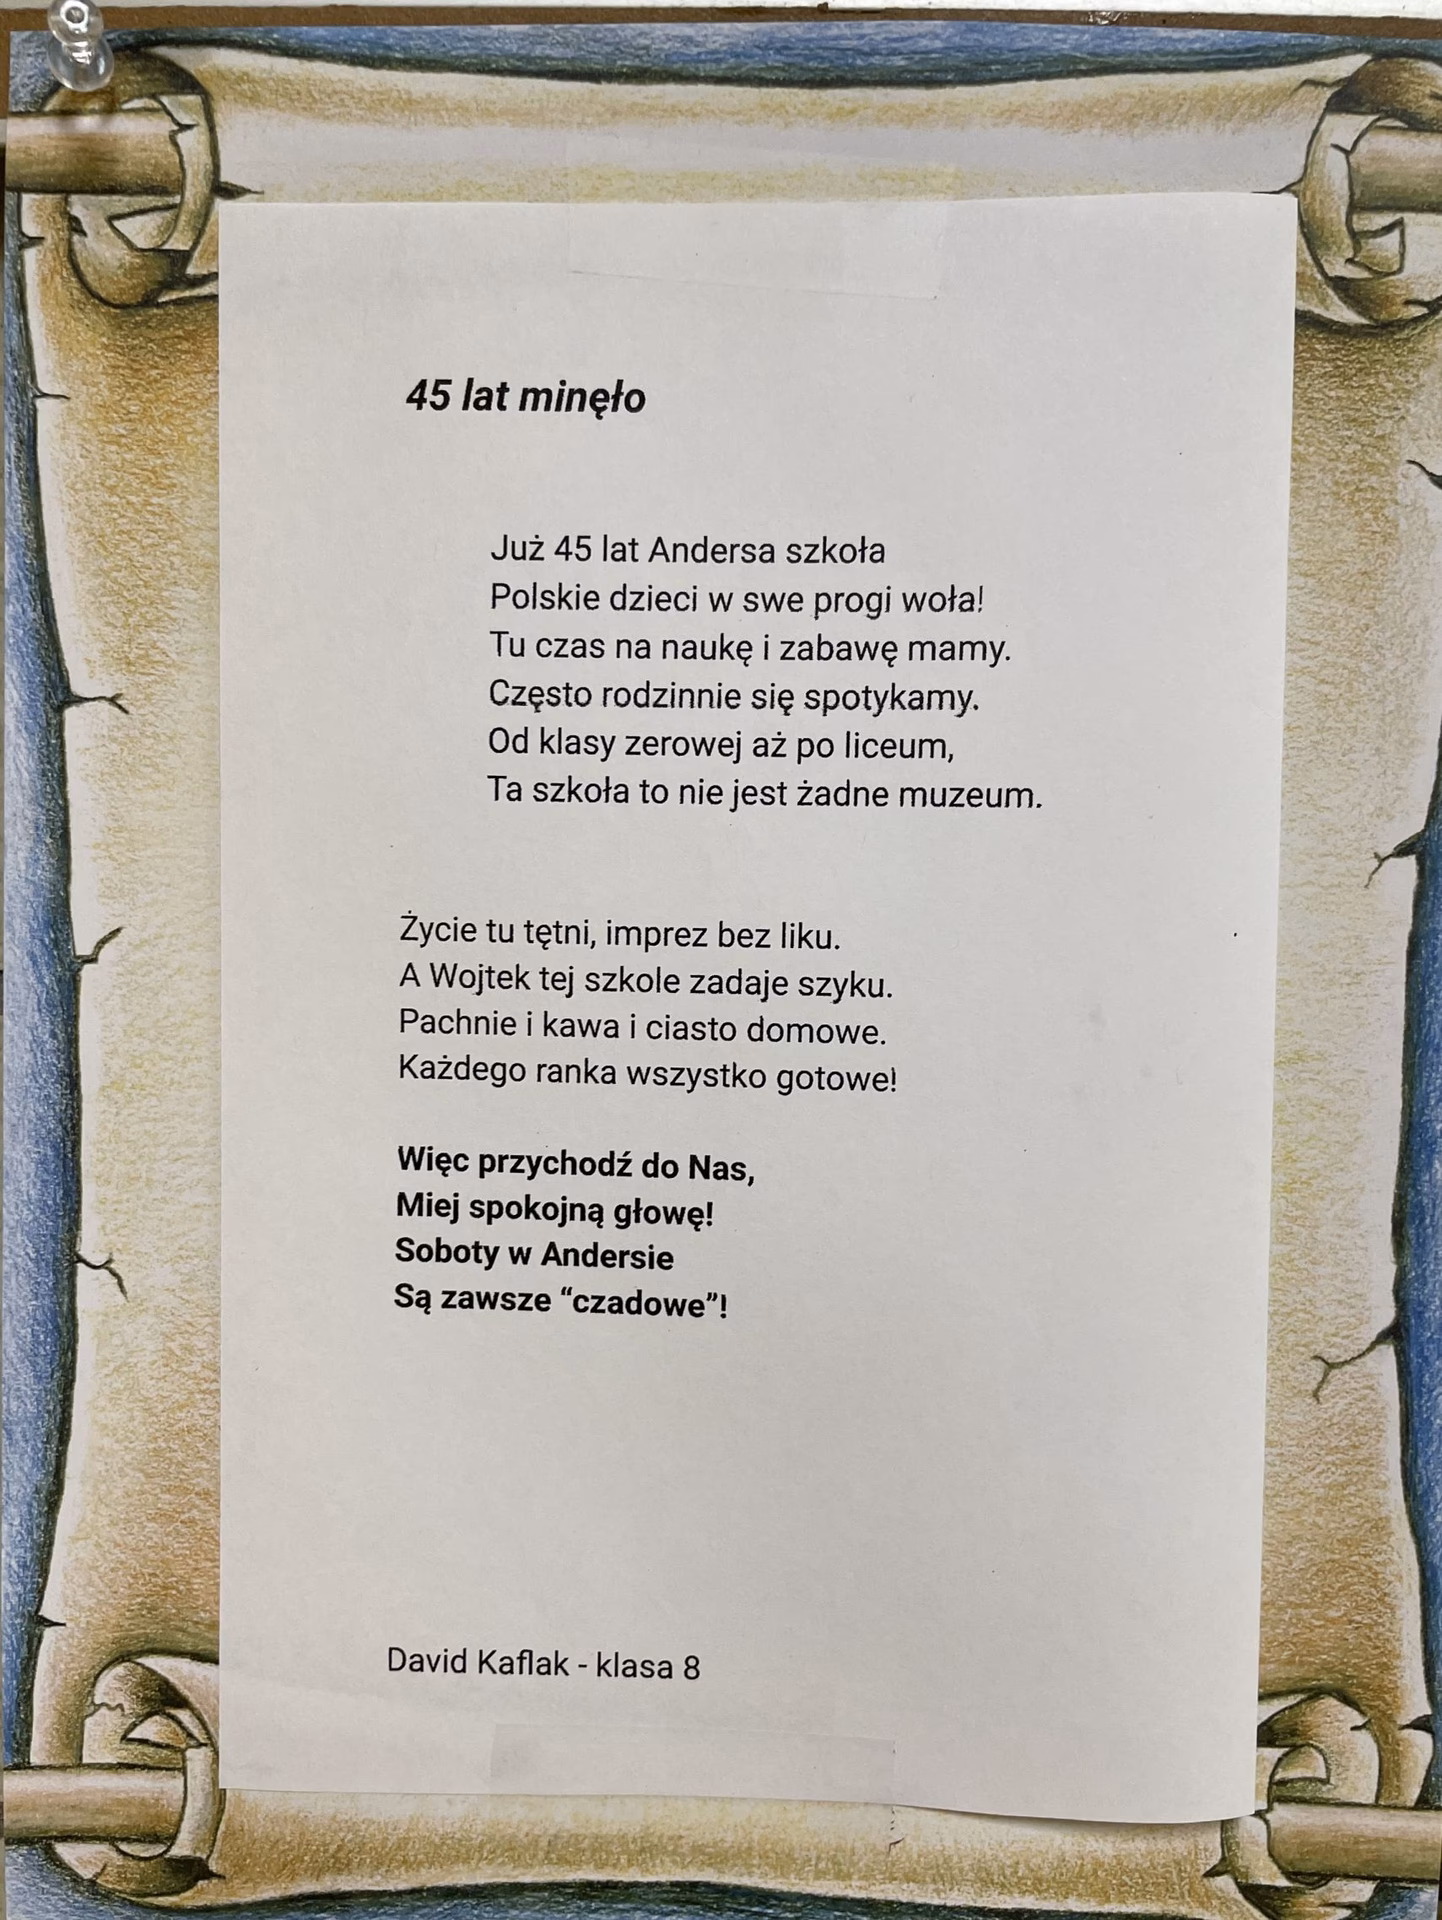 45 lat minęło
Już 45 lat Andersa szkoła
Polskie dzieci w swe progi woła!
Tu czas na naukę i zabawę mamy.
Często rodzinnie się spotykamy.
Od klasy zerowej aż po liceum,
Ta szkoła to nie jest żadne muzeum.
Życie tu tętni, imprez bez liku.
A Wojtek tej szkole zadaje szyku.
Pachnie i kawa i ciasto domowe.
Każdego ranka wszystko gotowe!
Więc przychodź do Nas,
Miej spokojną głowę!
Soboty w Andersie
Są zawsze “czadowe”!
David Kaflak - klasa 8